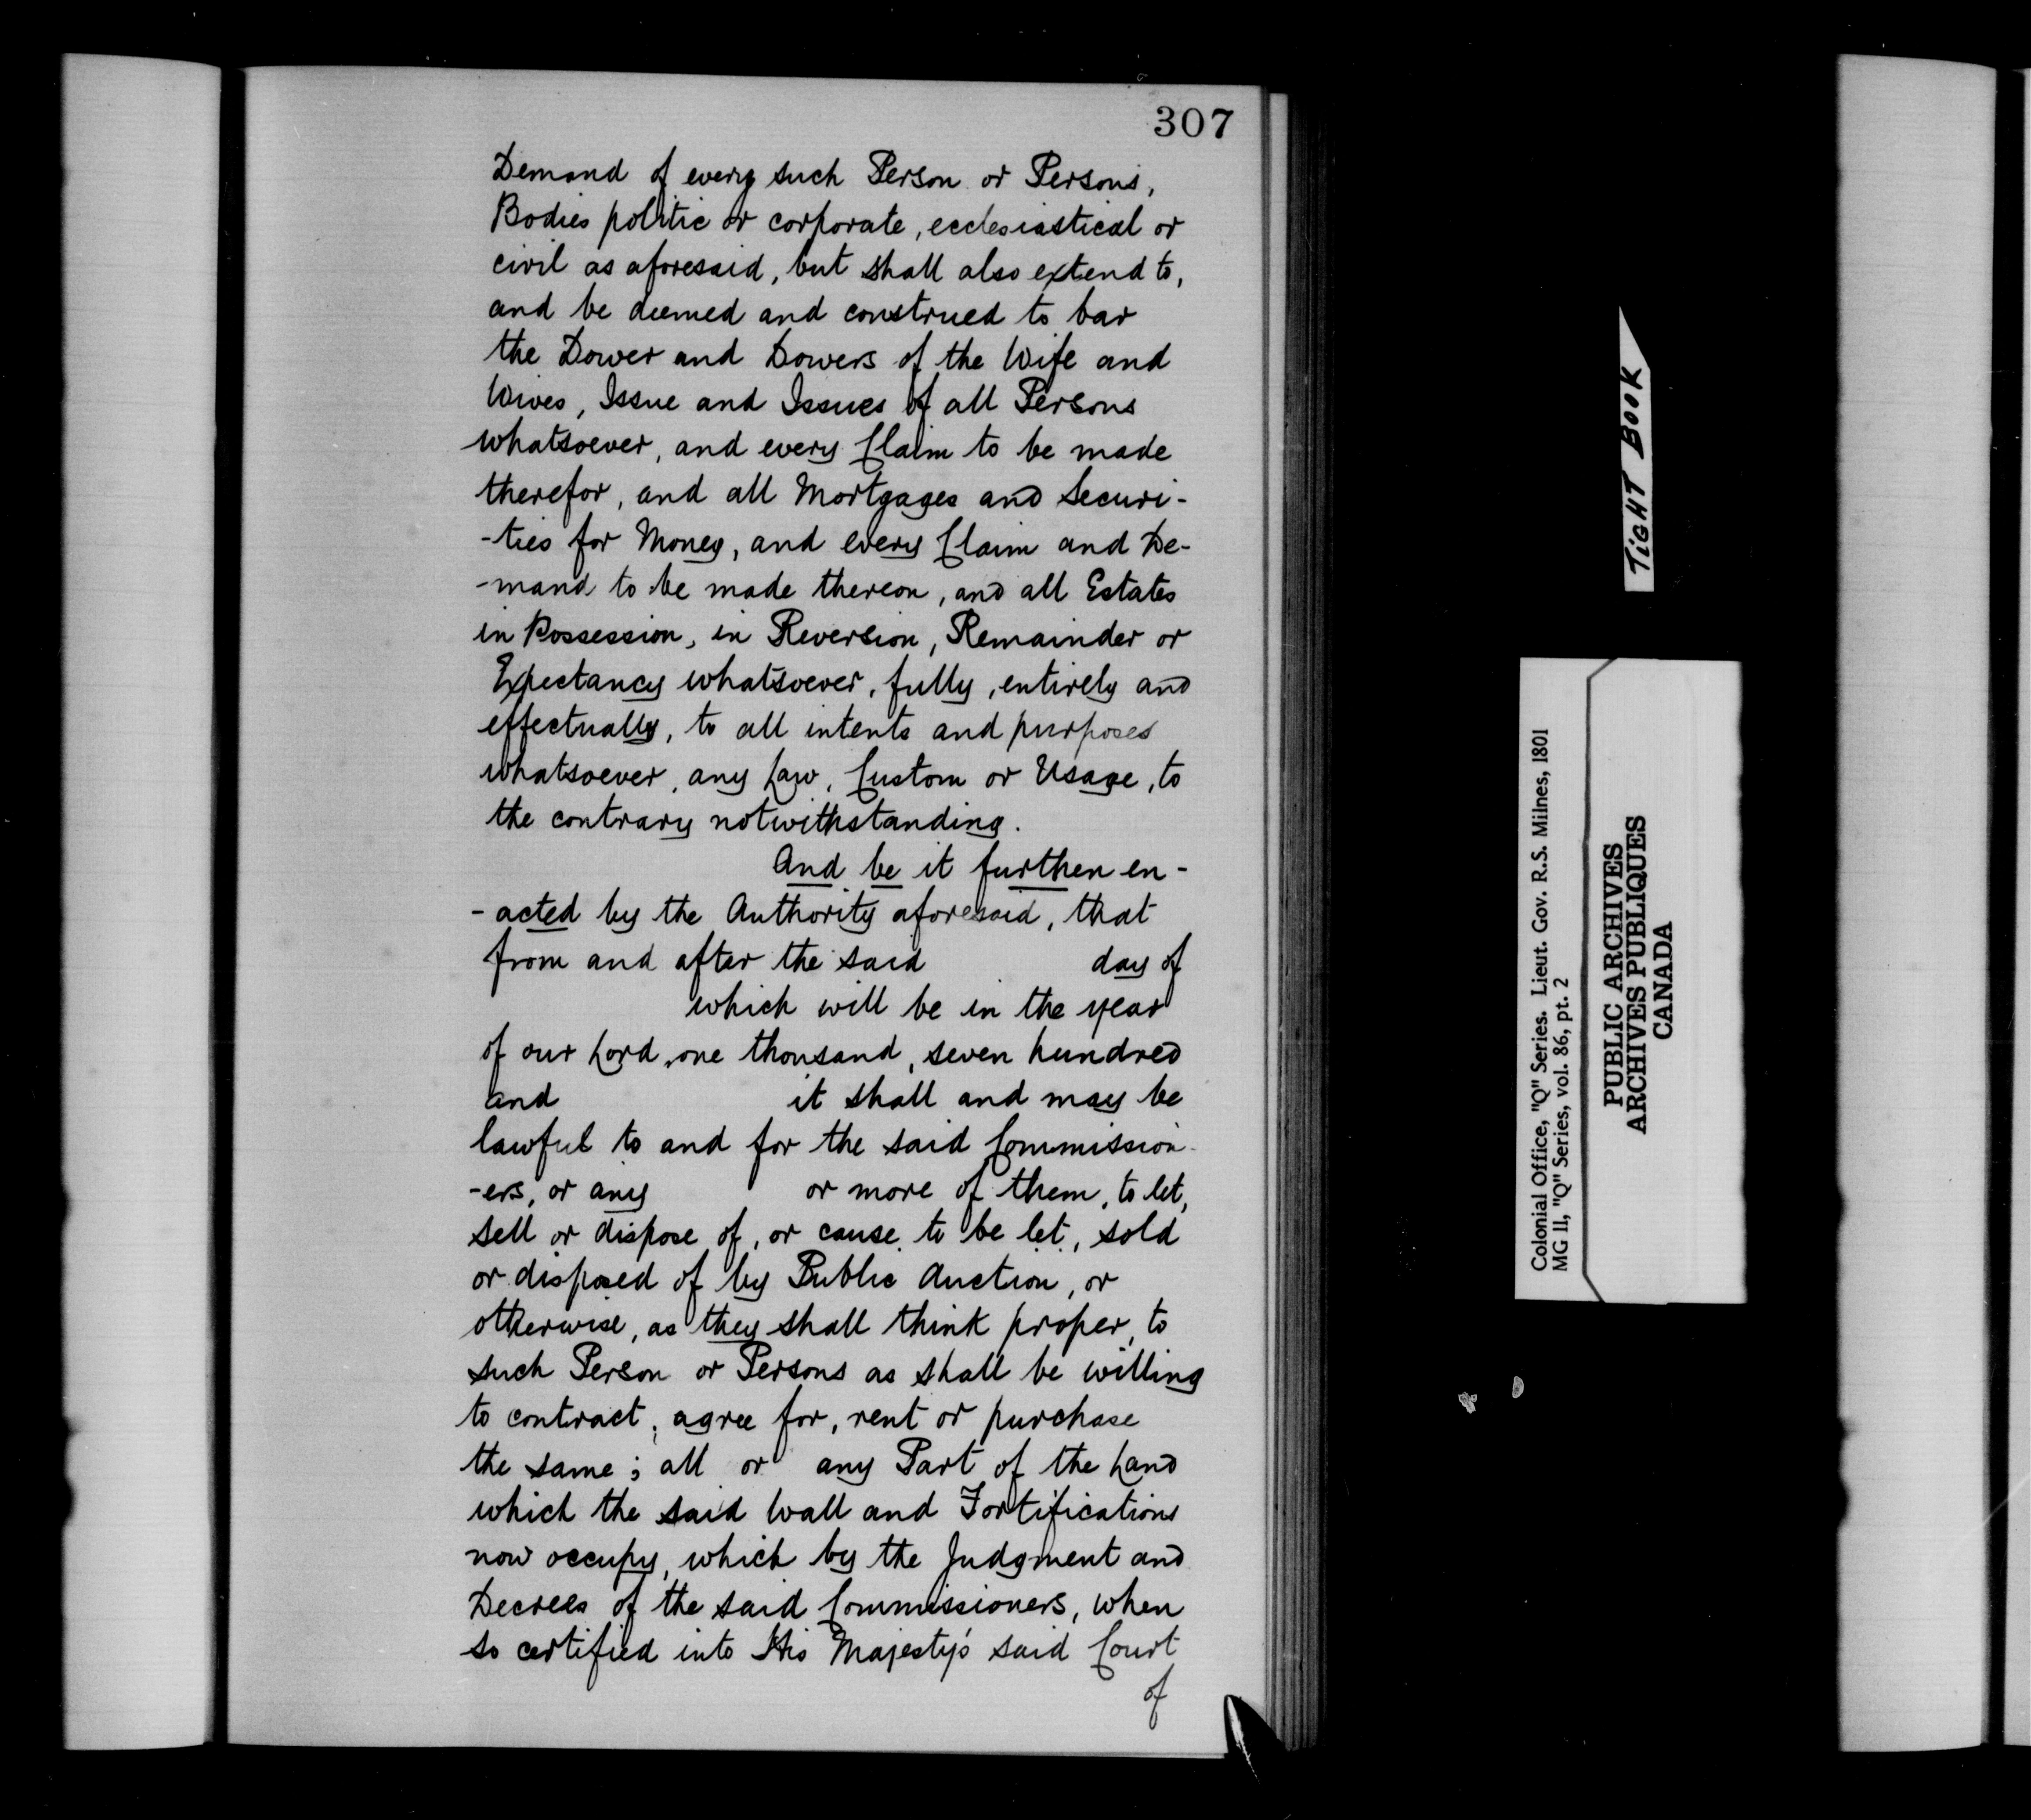 307
Demand of every such Person or Persons,
Bodies politic or corporate, ecclesiastical or
civil as aforesaid, but shall also extend to,
and be deemed and construed to bar
the Dower and Dowers of the Wife and
Wives, Issue and Issues of all Persons
whatsoever, and every Claim to be made
therefor, and all Mortgages and Securi-
-ties for Money, and every Claim and De-
-mand to be made thereon, and all Estates
in Possession, in Reversion, Remainder or
Expectancy whatsoever, fully, entirely and
effectually, to all intents and purposes
whatsoever, any Law, Custom or Usage, to
the contrary notwithstanding.
And be it further en-
-acted by the Authority aforesaid, that
from and after the said day of
which will be in the year
of our Lord, one thousand, seven hundred
and it shall and may be
lawful to and for the said Commission-
-ers, or any or more of them, to let,
sell or dispose of, or cause to be let, sold
or disposed of by Public Auction, or
otherwise, as they shall think proper, to
such Person or Persons as shall be willing
to contract, agree for, rent or purchase
the same; all or any Part of the Land
which the said Wall and Fortifications
now occupy, which by the Judgment and
Decrees of the said Commissioners, when
so certified into His Majesty's said Court
of
TIGHT BOOK
Colonial Office, "Q" Series. Lieut. Gov. R.S. Milnes, 1801
MG 11, "Q" Series, vol. 86, pt. 2
PUBLIC ARCHIVES
ARCHIVES PUBLIQUES
CANADA